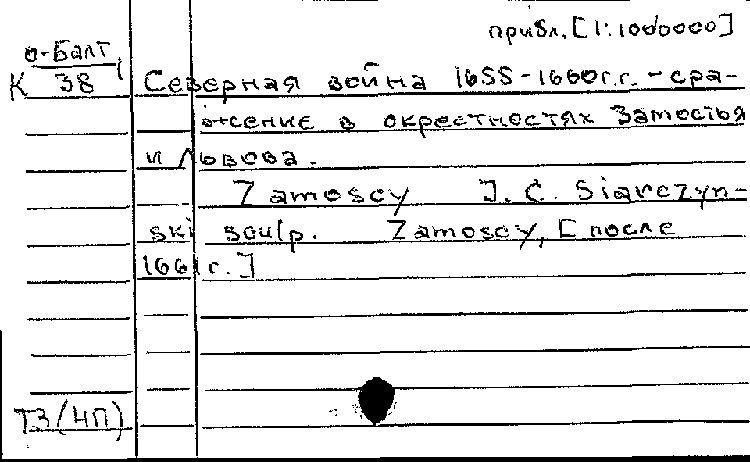 прибл. [1:1000000]
О-Балт,
К 38
Северная война 1655-1660г.г. - сра-
жение в окрестностях Замостья
и Львова.
Zamoscy J. C. Siarczyn-
ski sculp. Zamoscy, [после
1661г.]
ТЗ(ЧП)